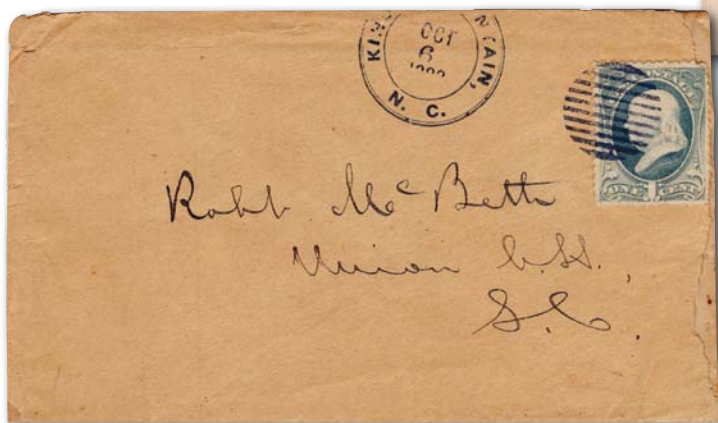 OCT
6
N. C.
Robt. McBeth
Union C.H.,
S.C.